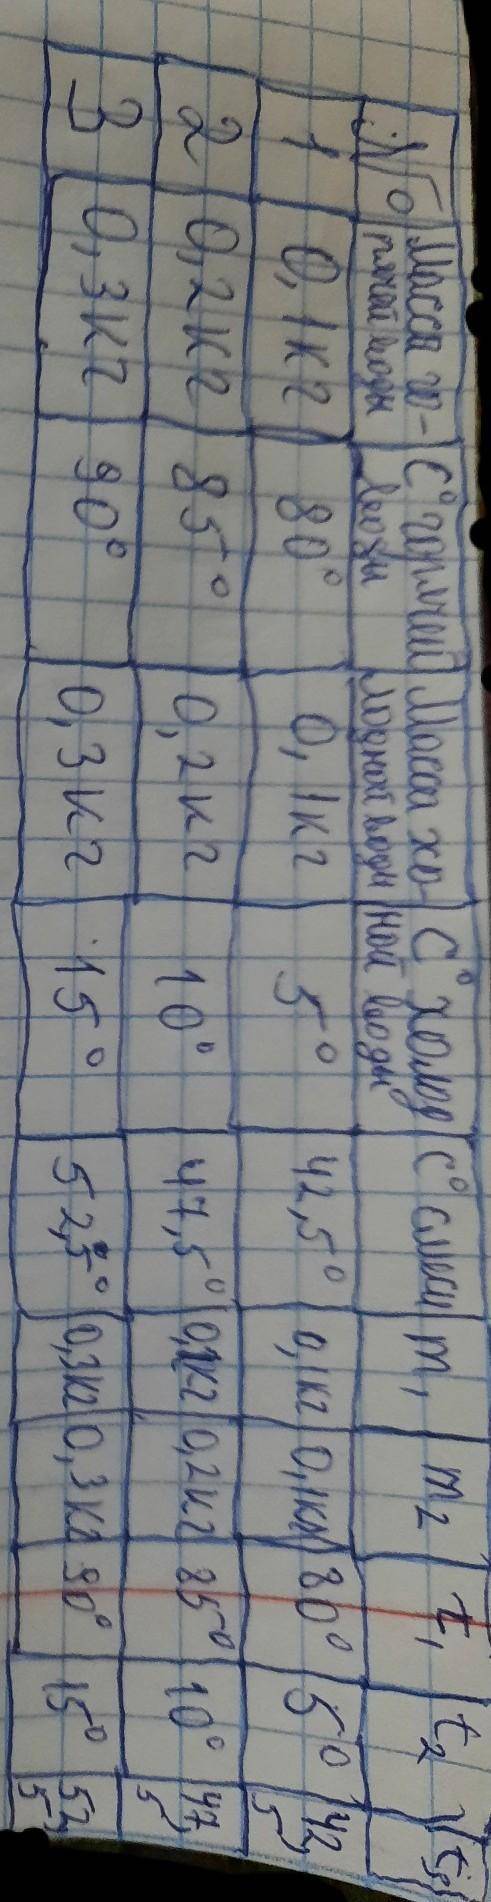 № Масса го- С° горячей Масса хо- С° холод С° смеси m₁ m₂ t₁ t₂ t
рячей воды воды лодной воды ной воды
1 0,1кг 80° 0,1кг 5° 42,5° 0,1кг 0,1кг 80° 5° 42,5
2 0,2кг 85° 0,2кг 10° 47,5° 0,2кг 0,2кг 85° 10° 47,5
3 0,3кг 90° 0,3кг 15° 52,5° 0,3кг 0,3кг 90° 15° 52,5